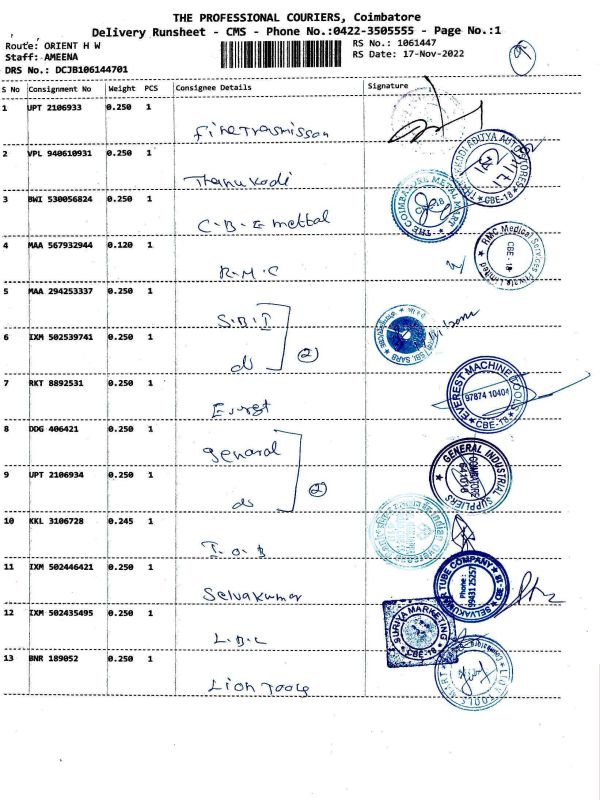 THE PROFESSIONAL COURIERS, Coimbatore
Delivery Runsheet - CMS - Phone No.:0422-3505555 - Page No.:1
Route: ORIENT H W RS No.: 1061447
Staff: AMEENA RS Date: 17-Nov-2022
DRS No.: DCJB106144701
S No Consignment No Weight PCS Consignee Details Signature
1 UPT 2106933 0.250 1
2 VPL 940610931 0.250 1 Thanukodi
THANUKODI ADITYA AUTO STORES CBE-18
3 BWI 530056824 0.250 1 C.B.E mettal
THE COIMBATORE METAL MART
4 MAA 567932944 0.120 1 R.M.C
RMC Medical Services Private Limited CBE-18
5 MAA 294253337 0.250 1 S.B.I
6 IXM 502539741 0.250 1 do (2)
7 RKT 8892531 0.250 1 Everst
EVEREST MACHINE TOOLS 97874 10404 CBE-18
8 DDG 406421 0.250 1 general
9 UPT 2106934 0.250 1 do (2)
GENERAL INDUSTRIAL SUPPLIERS
10 KKL 3106728 0.245 1 I.O.B
11 IXM 502446421 0.250 1 Selvakumar
SELVAKUMAR TUBE COMPANY Phone : 99431 25257
12 IXM 502435495 0.250 1 L.B.L
SURIYA MARKETING CBE-18
13 BNR 189052 0.250 1 Lion Tools